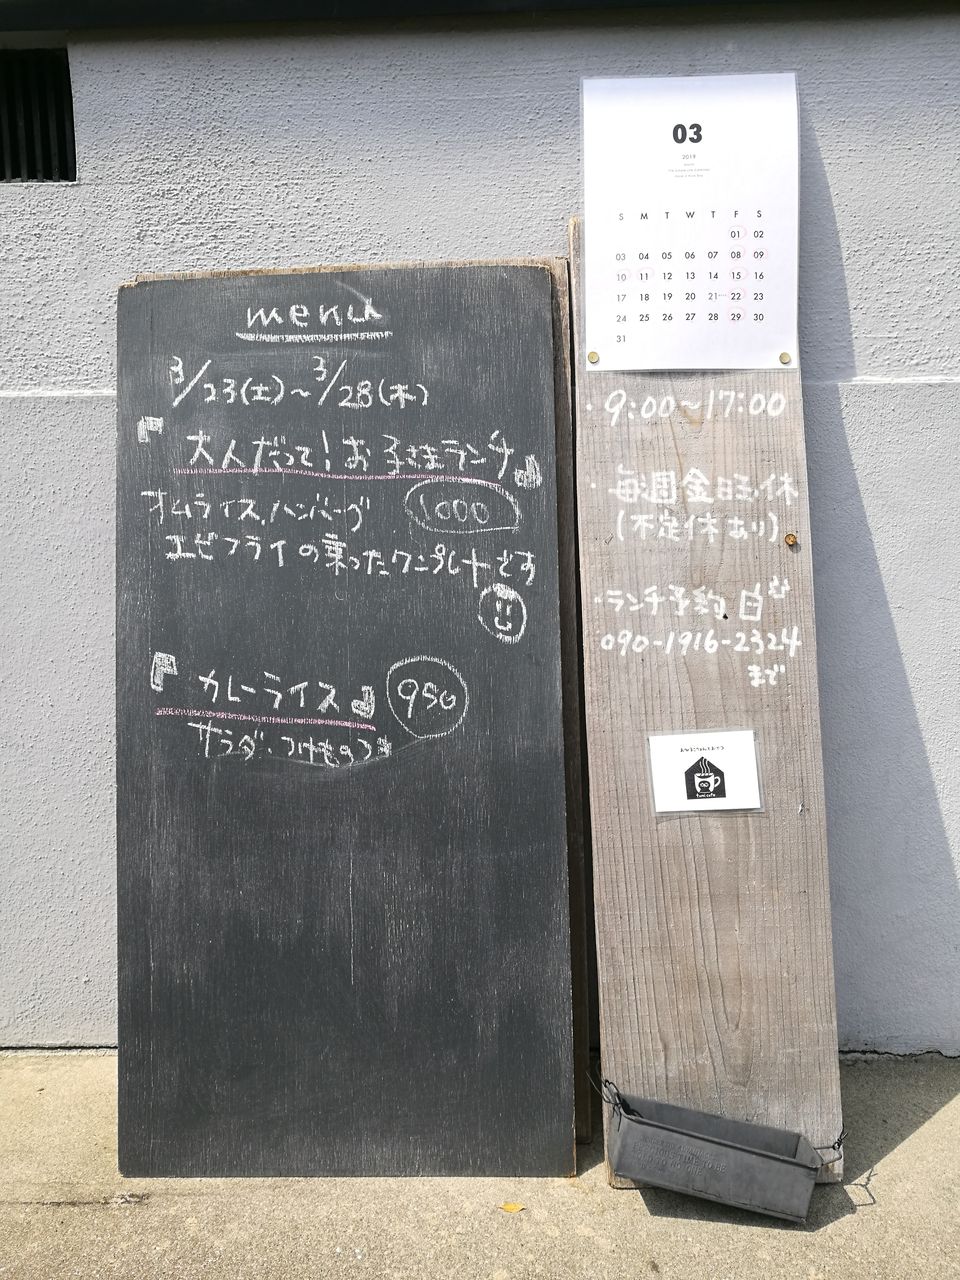 menu
3/23(土)〜3/28(木)
『大人だって!お子さまランチ』
オムライス.ハンバーグ 1000
エビフライの乗ったワンプレートです
『カレーライス』 950
サラダ・つけものつき
03
2019
S M T W T F S
01 02
03 04 05 06 07 08 09
10 11 12 13 14 15 16
17 18 19 20 21 22 23
24 25 26 27 28 29 30
31
・9:00〜17:00
・毎週金曜休
(不定休あり)
・ランチ予約
090-1916-2324
まで